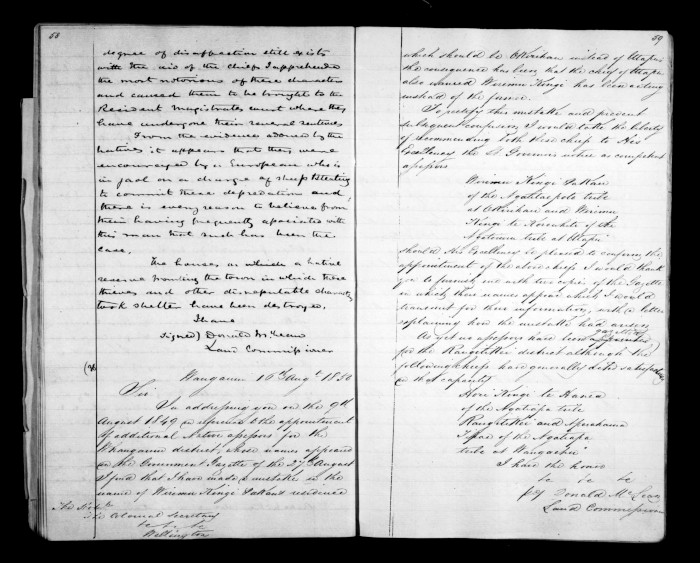 58
degree of disaffection still exists
with the aid of the chiefs I apprehended
the most notorious of these characters
and caused them to be brought to the
Resident Magistrates court where they
have undergone their several sentences
From the evidence adduced by the
natives it appears that they were
encouraged by a European who is
in jaol on a charge of sheep stealing
to commit these depredations and
there is every reason to believe from
their having frequently associated with
this man that such has been the
case.
The houses on a native
reserve the town in which these
thieves and other disreputable characters
took shelter have been destroyed.
I have
Signed) Donald McLean
Land Commissioner
Wanganui 16th Augt 1850
Sir
In addressing you on the 9th
August 1849 in reference to the appointment
of additional Native assessors for the
Whanganui district, whose names appeared
in the Government Gazette of the 27th August
I find that I have made a mistake in the
name of Wiremu Kingi residence
The Honble
The Colonial Secretary
&c &c &c
Wellington
59
which should be instead of Utapu
the consequence has been that the chief of Utapu
also named Wiremu Kingi has been acting
instead of the former.
To rectify this mistake and prevent
subsequent confusion, I would take the liberty
of recommending both these chiefs to His
Excellency the Lt Governors notice as competent
assessors
Wiremu Kingi
of the tribe
at and Wiremu
Kingi te of the
tribe at Utapu
should His Excellency be pleased to confirm the
appointment of the above chiefs I would thank
you to furnish me with two copies of the Gazette
in which their names appear which I would
transmit for their information, with a letter
explaining how the mistake had arisen
gazetted
As yet no assessors have been
for the Rangitikei district although the
following chiefs have generally acted
in that capacity
Hori Kingi te
of the Ngatiapa tribe
Rangitikei and
of the Ngatiapa
tribe at Wangaehu
I have the honor
&c &c &c
Donald McLean
Land Commissioner